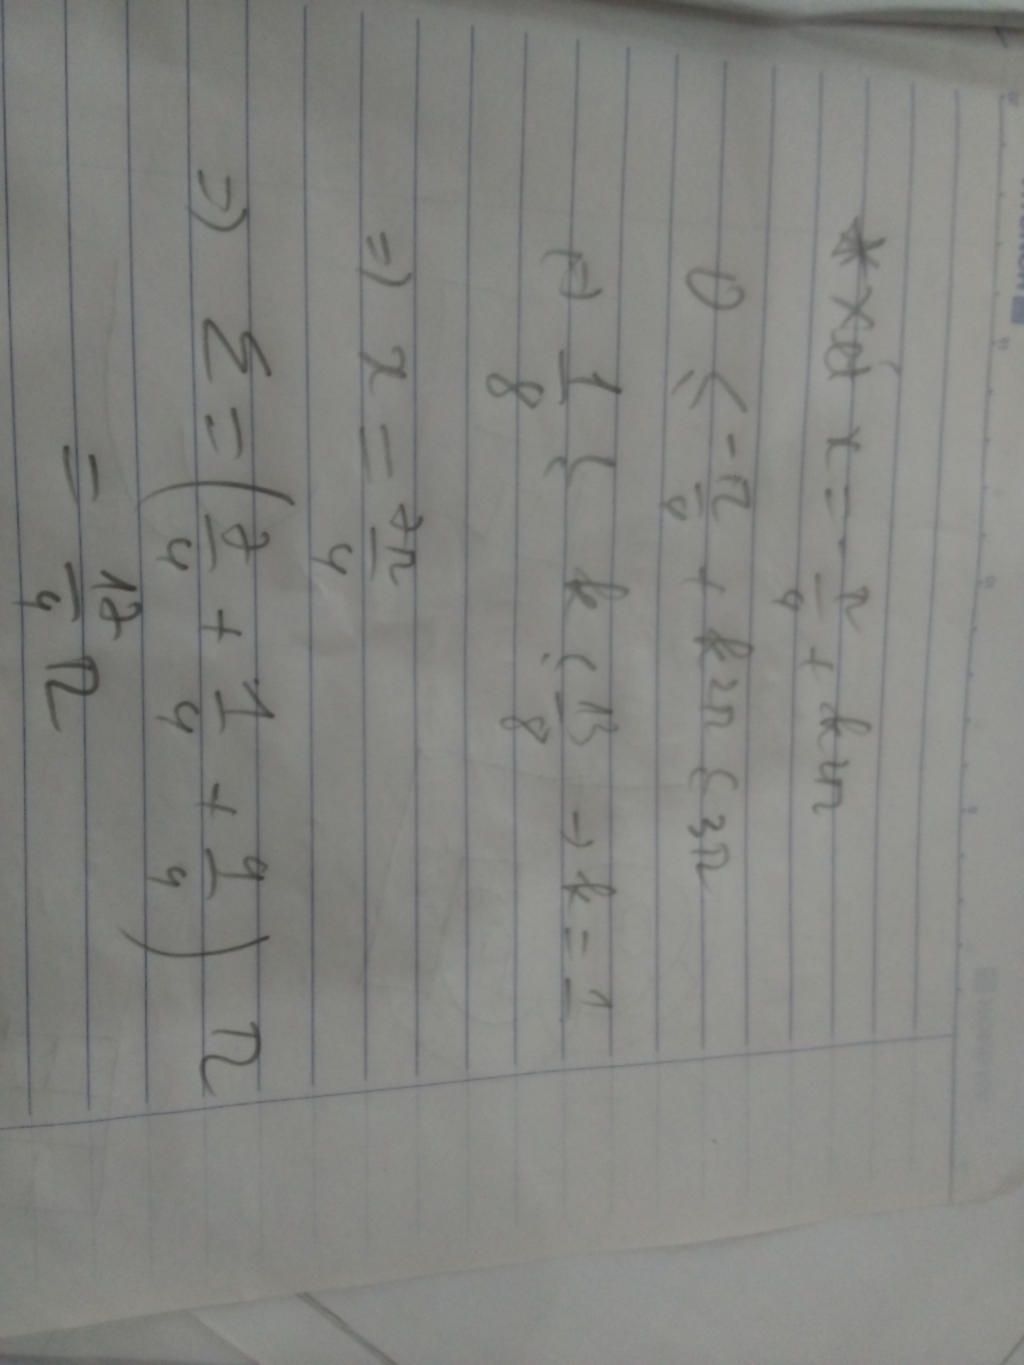 * Xét x = -π/4 + k2π
0 ≤ -π/4 + k2π < 3π
(=) 1/8 < k < 13/8 → k = 1
=) x = 7π/4
=) Σ = (7/4 + 1/4 + 9/4) π
= 17/4 π